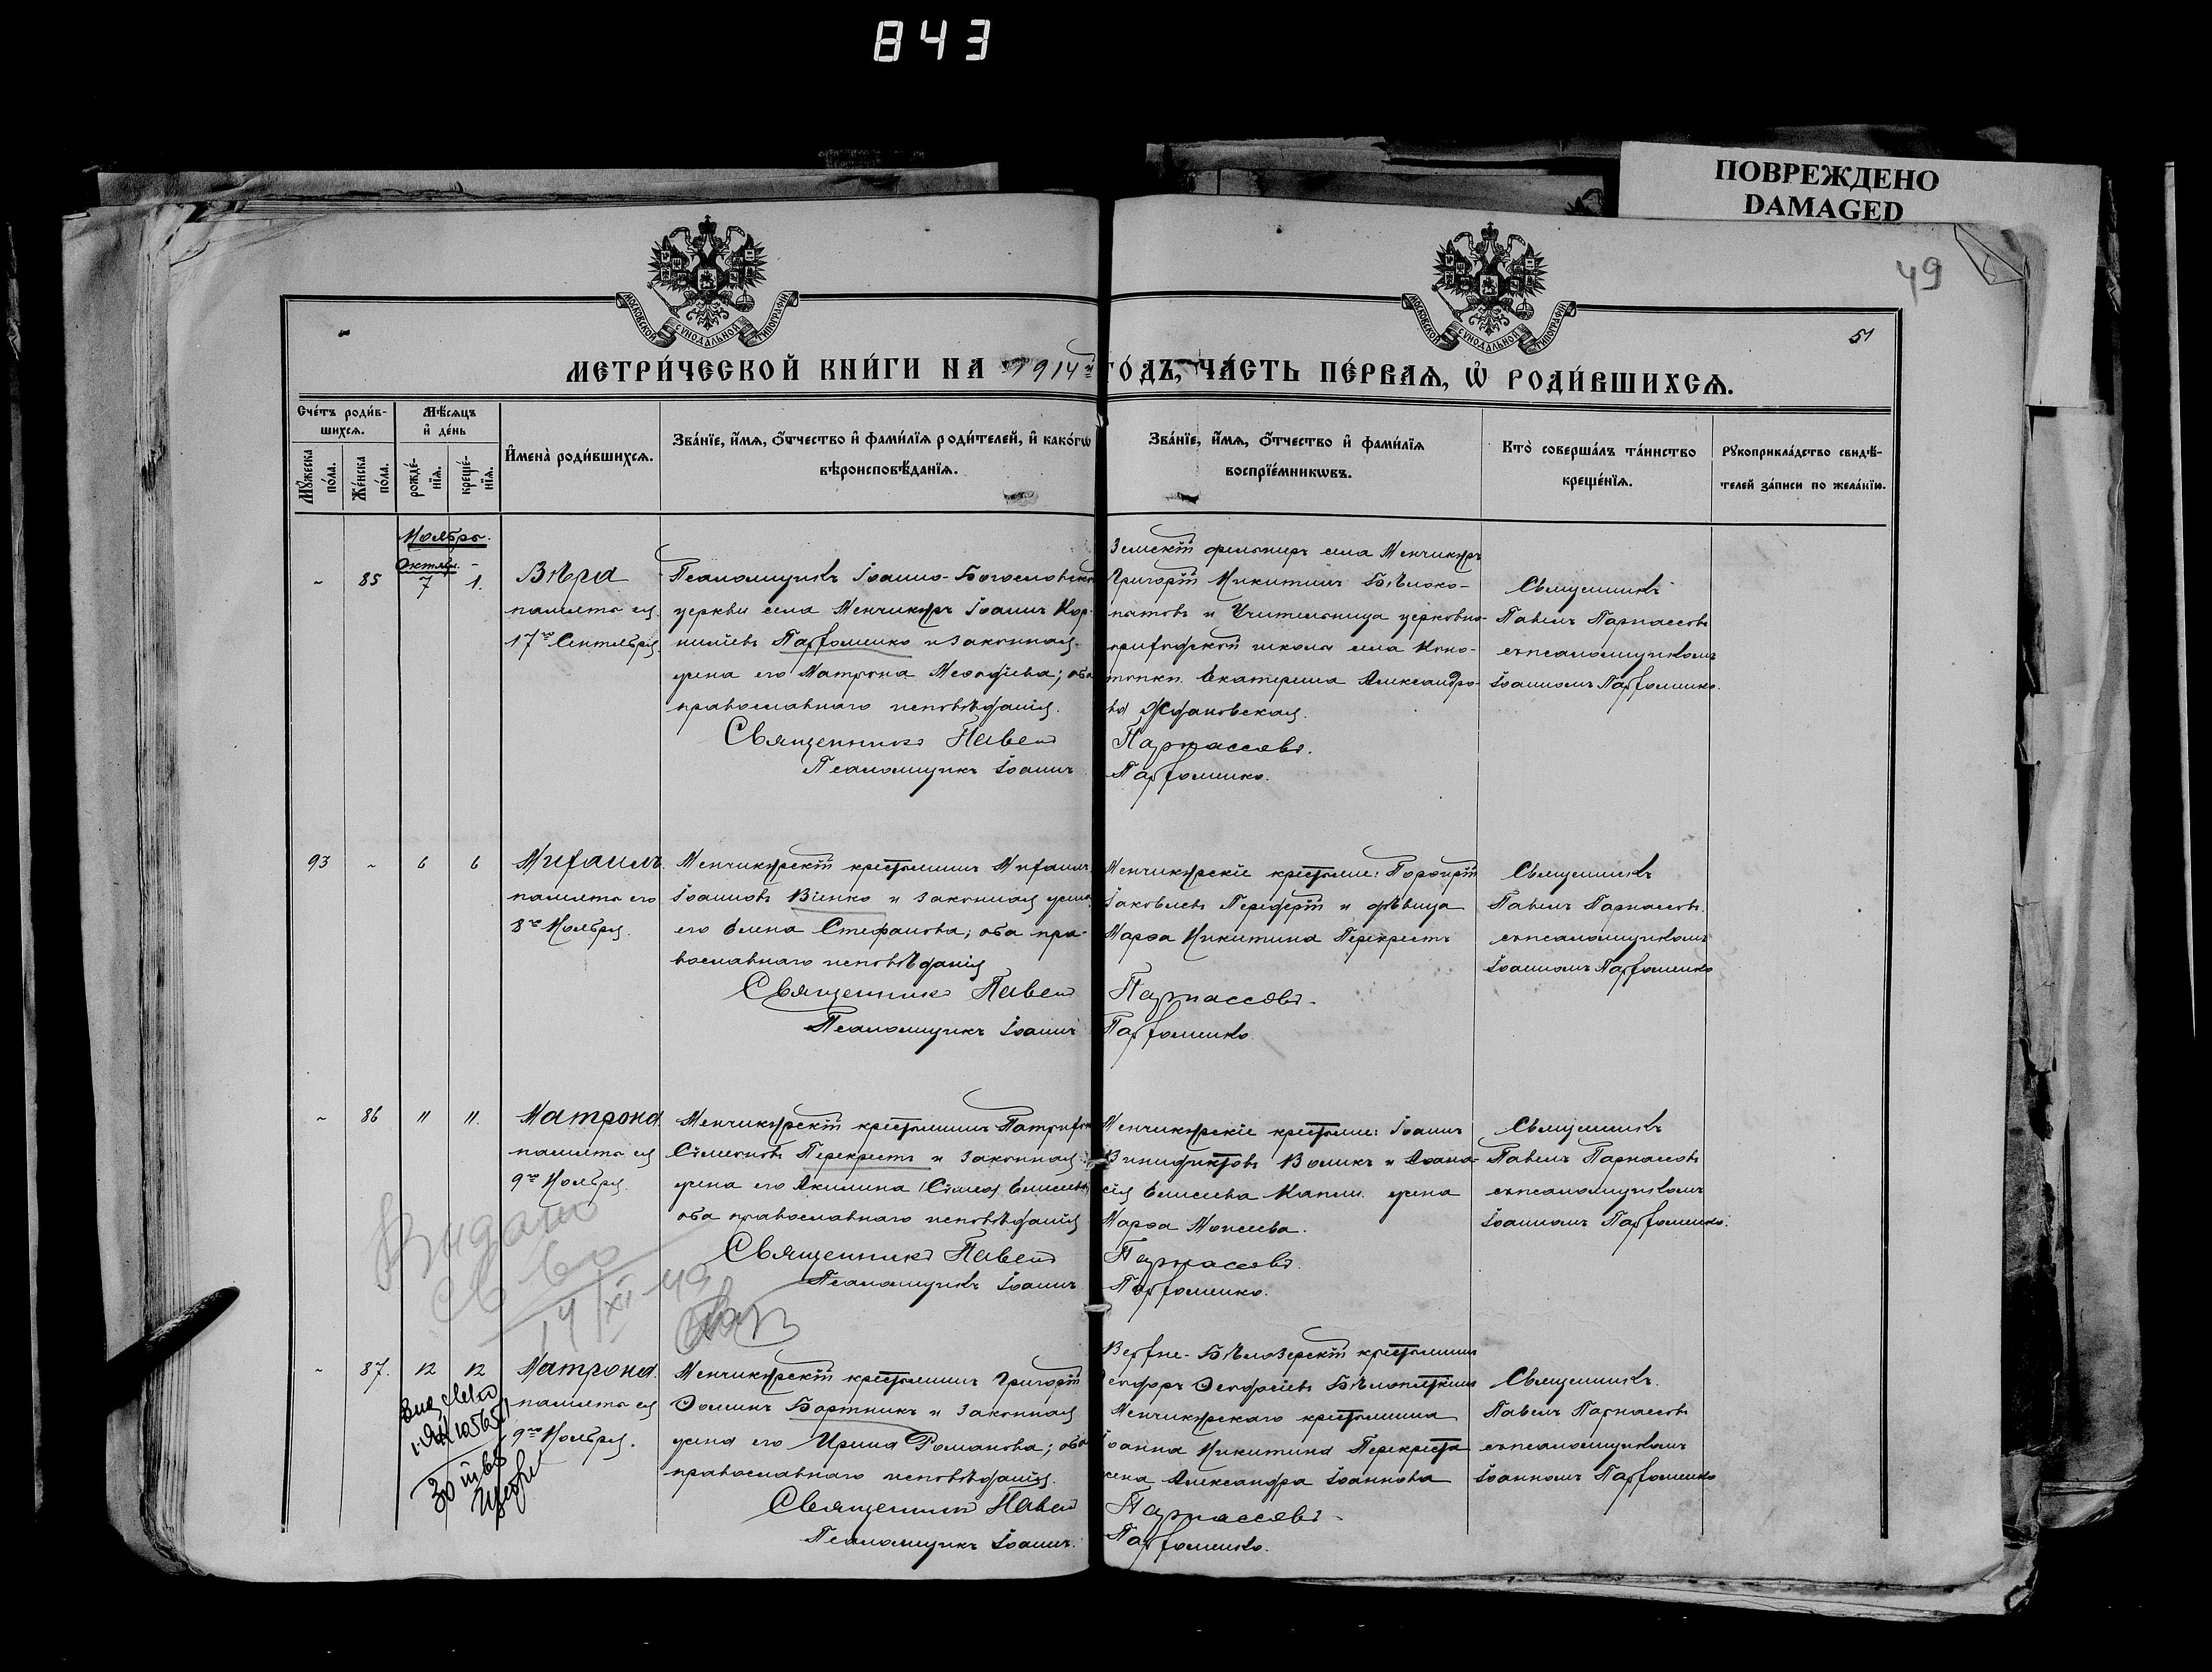 843
ПОВРЕЖДЕНО
DAMAGED
49
51
МОСКОВСКОЙ СѴНОДАЛЬНОЙ ТИПОГРАФІИ
МОСКОВСКОЙ СѴНОДАЛЬНОЙ ТИПОГРАФІИ
МЕТРИ́ЧЕСКОЙ КНИ́ГИ НА 1914й ГО́ДЪ, ЧА́СТЬ ПЕ́РВАѦ, Ѡ҆ РОДИ́ВШИХСѦ.
Сче́тъ роди́в-
шихсѧ.
Мѣ́сѧцъ
и҆ де́нь
Мꙋ́жеска
по́ла.
Же́нска
по́ла.
рожде́-
нїѧ.
креще́-
нїѧ.
И҆мена̀ роди́вшихсѧ.
Зва́нїе, и҆́мѧ, ѻ҆́тчество и҆ фами́лїѧ роди́телей, и҆ како́гѡ
вѣроисповѣ́данїѧ.
Зва́нїе, и҆́мѧ, ѻ҆́тчество и҆ фами́лїѧ
воспрїе́мникѡвъ.
Кто̀ соверша́лъ та́инство
креще́нїѧ.
Рꙋкоприкла́дство свидѣ́-
телей за́писи по жела́нїю.
Ноябрь.
Октябр.
~ 85 7 1.
Вѣра
память ея
17го Сентября
Псаломщикъ Іоанно-Богословской
церкви села Менчикуръ Іоаннъ Кор-
нилiевъ Парфоменко и законная
жена его Матрона Меѳодіева; оба
православнаго исповѣданія.
Священникъ Павелъ
Псаломщикъ Іоаннъ
Земскій фельшеръ села Менчикуръ
Григорій Никитинъ Бѣлоко-
патовъ и Учительница церковно-
приходской школы села Коно-
топки Екатерина Александро-
ва Ждановская.
Парнассовъ.
Парфоменко.
Священникъ
Павелъ Парнассовъ
съ псаломщикомъ
Іоанномъ Парфоменко.
93 ~ 6 6
Михаилъ.
память его
8го Ноября.
Менчикурскій крестьянинъ Михаилъ
Іоанновъ Віенко и законная жена
его Елена Стефанова; оба пра-
вославнаго исповѣданія
Священникъ Павелъ
Псаломщикъ Іоаннъ
Менчикурскіе крестьяне: Порфирій
Іаковлевъ Передерій и дѣвица
Марѳа Никитина Перекрестъ
Парнассовъ.
Парфоменко.
Священникъ
Павелъ Парнассовъ
съ псаломщикомъ
Іоанномъ Парфоменко
~ 86 11 11.
Матрона.
память ея
9го Ноября.
Менчикурскій крестьянинъ
Сімеоновъ Перекрестъ и законная
жена его Акилина
оба православнаго исповѣданія
Священникъ Павелъ
Псаломщикъ Іоаннъ
Менчикурскіе крестьяне: Іоаннъ
Воликъ и
Елисеева жена
Марѳа Моисеева.
Парнассовъ.
Парфоменко.
Священникъ
Павелъ Парнассовъ
съ псаломщикомъ
Іоанномъ Парфоменко.
Видано
св во
14/XI-49
~ 87. 12 12
Матрона.
память ея
9го Ноября.
Менчикурскій крестьянинъ Григорій
Ѳоминъ Бортникъ и законная
жена его Ирина Романова; оба
православнаго исповѣданія.
Священникъ Павелъ
Псаломщикъ Іоаннъ.
Верхне-Бѣлозерскій крестьянинъ
Менчикурскаго крестьянина
Іоанна Никитина Перекреста
жена Александра Іоаннова
Парнассовъ.
Парфоменко.
Священникъ.
Павелъ Парнассовъ
съ псаломщикомъ
Іоанномъ Парфоменко